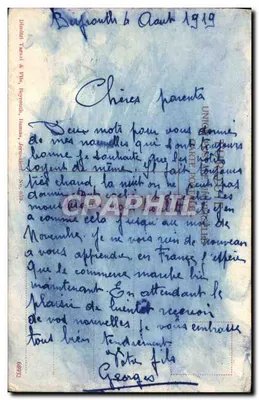 Beyrouth 6 Aout 1919
Chères parents
Deux mots pour vous donner
de mes nouvelles qui sont toujours
bonne je souhaite que les votres
soient de même. Il fait toujours
très chaud la nuit on ne peut pas
a comme cela jusqu au moi de
Novembre. Je ne vois rien de nouveau
a vous apprendre en France j'espère
que le commerce marche bien
maintenant. En attendant le
plaisir de bientot recevoir
de vos nouvelles je vous embrasse
tous bien tendrement
Votre fils
Georges
Dimitri Tarazi & Fils, Beyrouth, Damas, Jérusalem
CARTE POSTALE
CPHARTIE